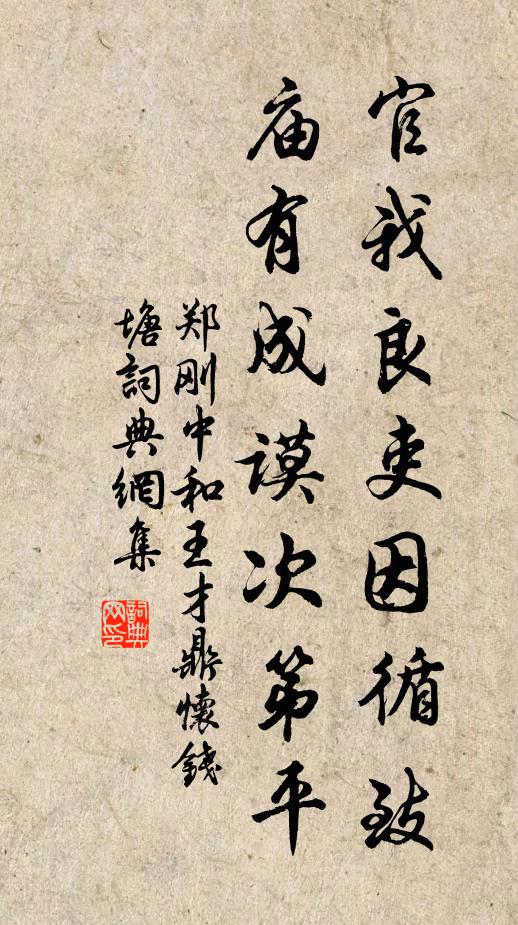 官我良吏因循致
庙有成谟次第平
郑刚中和王才鼎懷錢
塘詞典網集
詞典网印